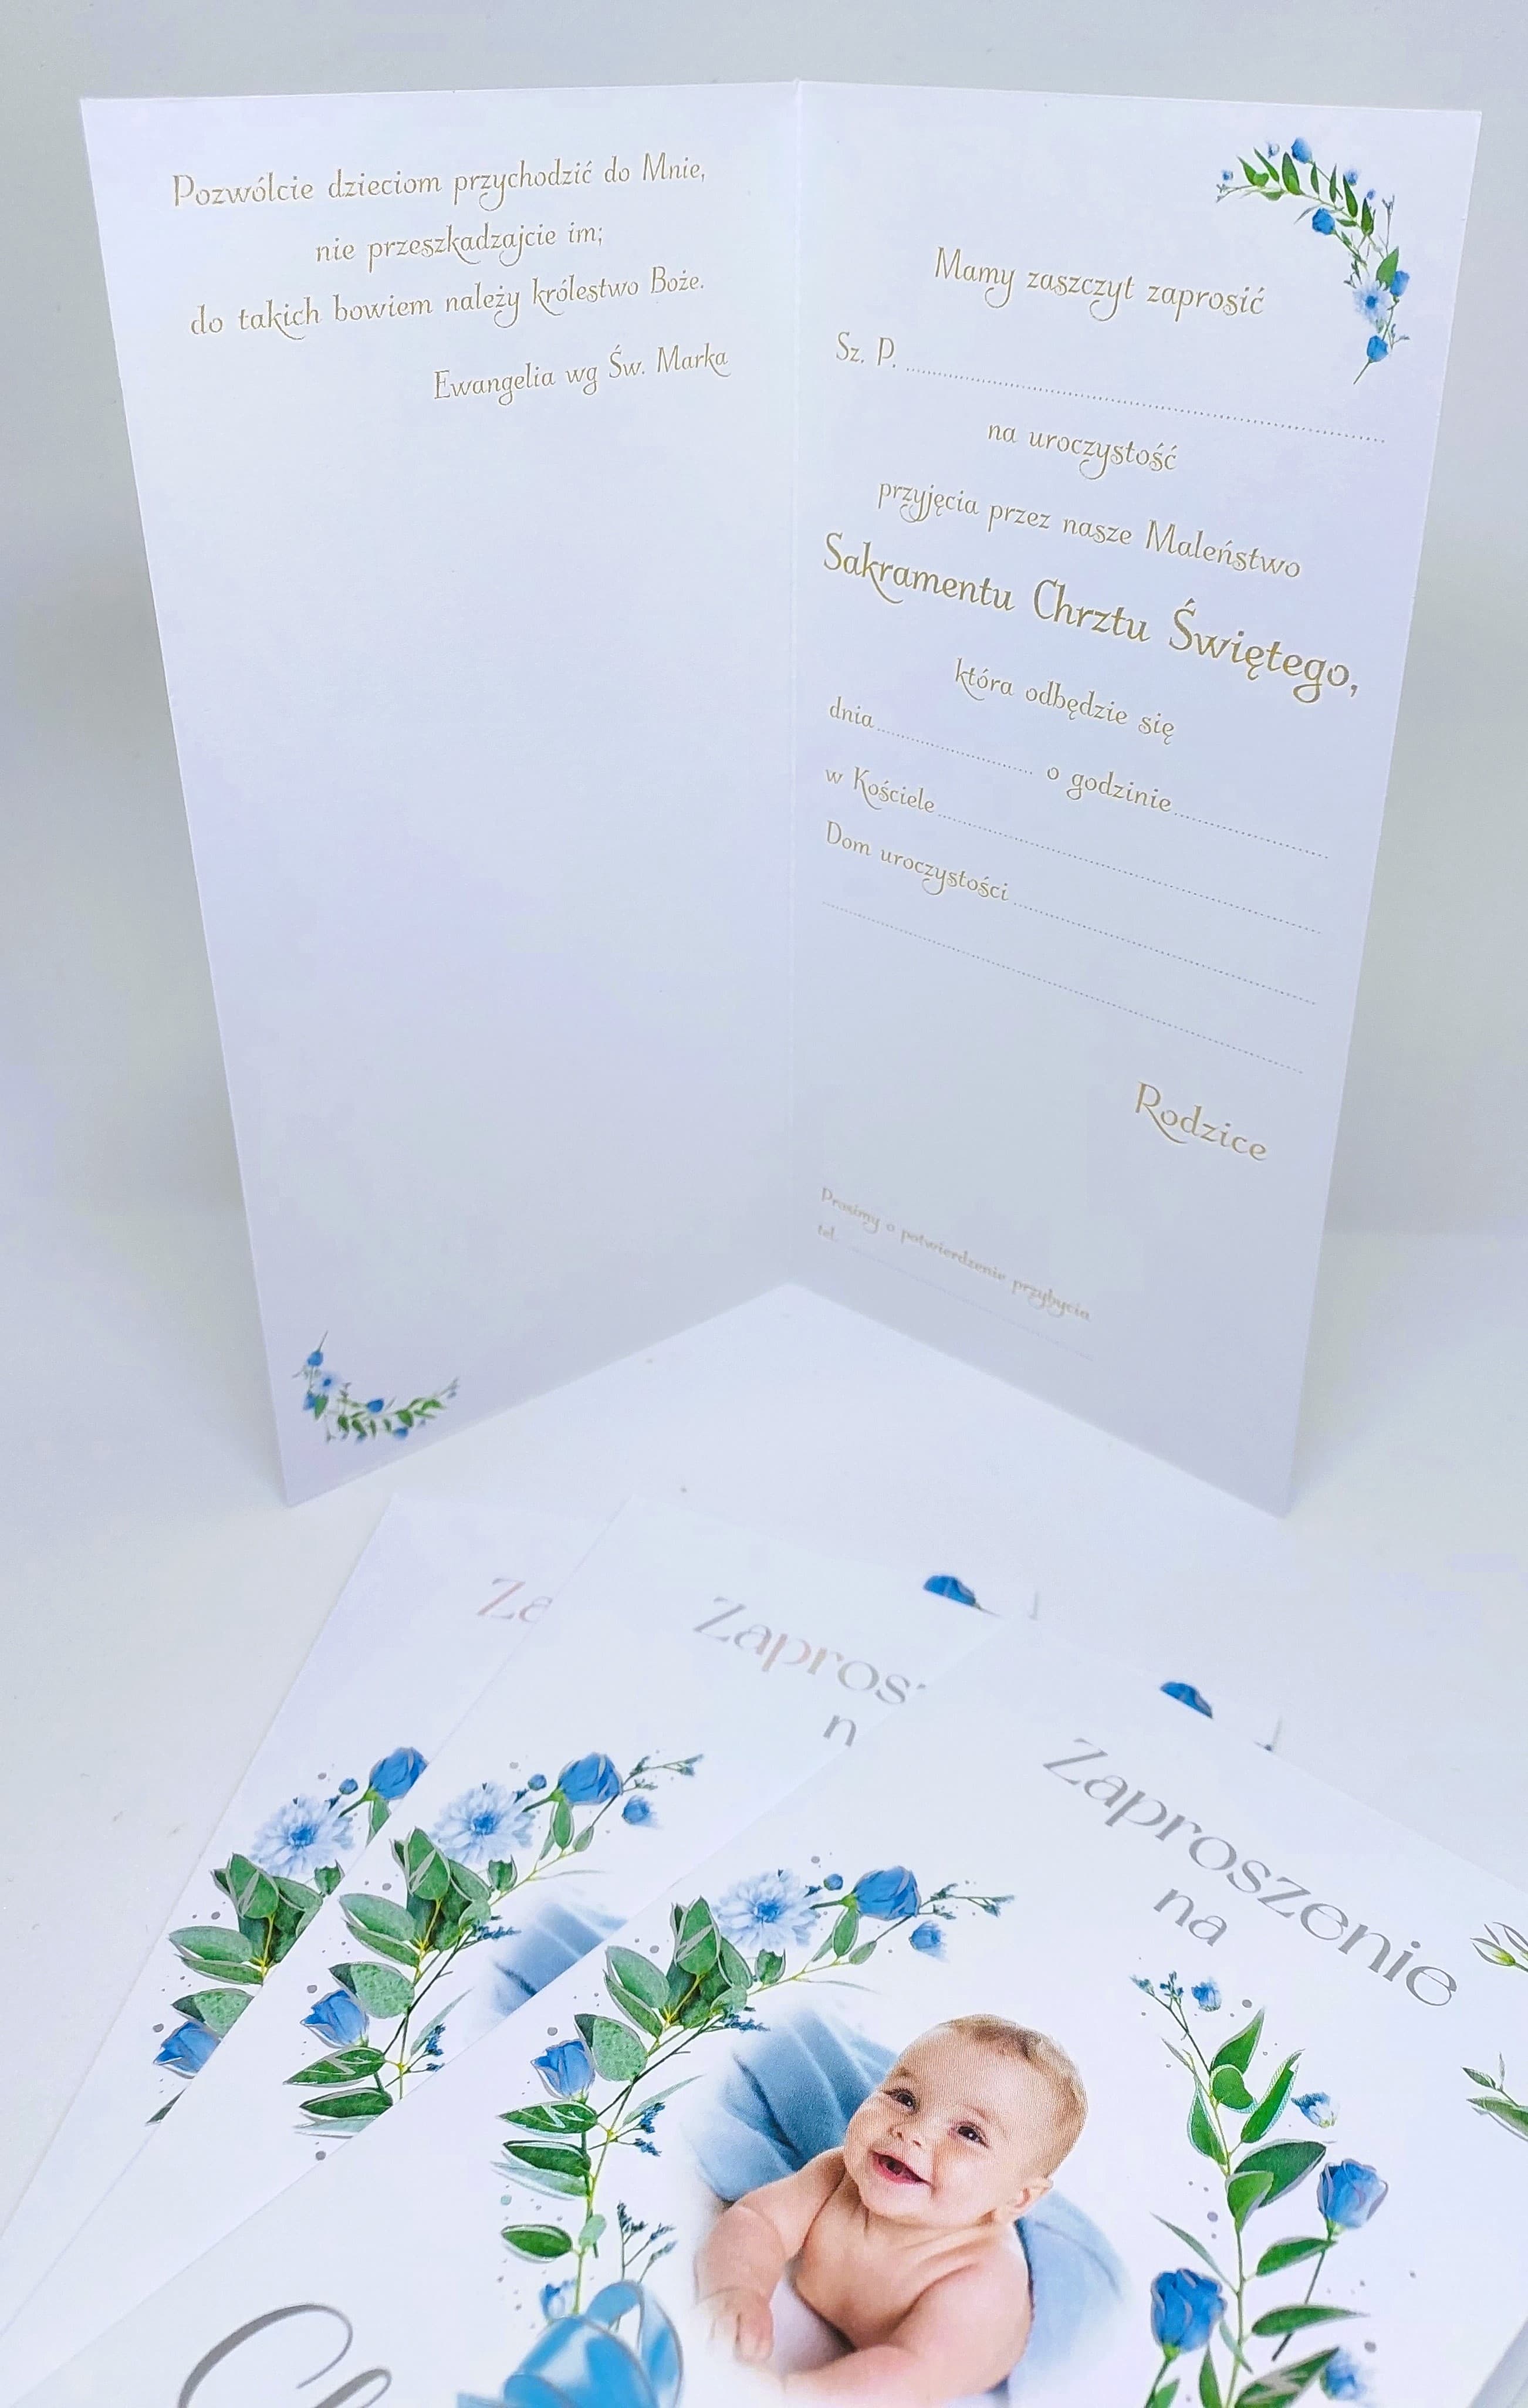 Pozwólcie dzieciom przychodzić do Mnie,
nie przeszkadzajcie im;
do takich bowiem należy królestwo Boże.
Ewangelia wg Św. Marka
Mamy zaszczyt zaprosić
Sz. P. ........................................
na uroczystość
przyjęcia przez nasze Maleństwo
Sakramentu Chrztu Świętego,
która odbędzie się
dnia.................... o godzinie....................
w Kościele........................................
Dom uroczystości........................................
............................................................
Rodzice
Prosimy o potwierdzenie przybycia
tel. ..............................
Za
Zapros
n
Zaproszenie
na
Ch